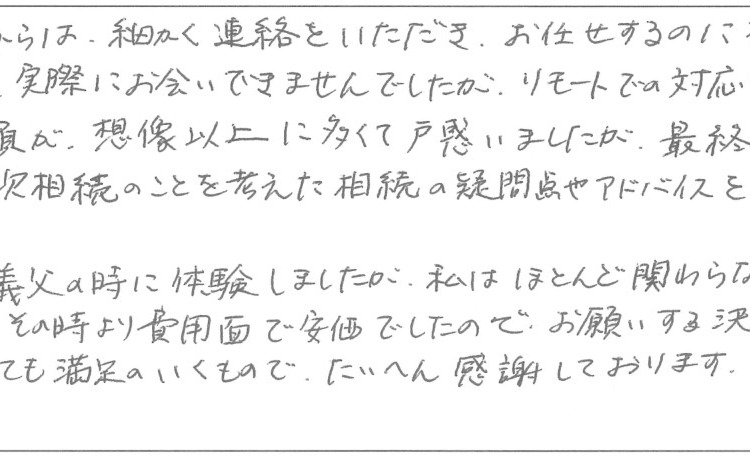 からは、細かく連絡をいただき、お任せするのに
実際にお会いできませんでしたが、リモートでの対応
が、想像以上に多くて戸惑いましたが、最終
次相続のことを考えた相続の疑問点やアドバイスを
義父の時に体験しましたが、私はほとんど関わらな
その時より費用面で安価でしたので、お願いする決
ても満足のいくもので、たいへん感謝しております。